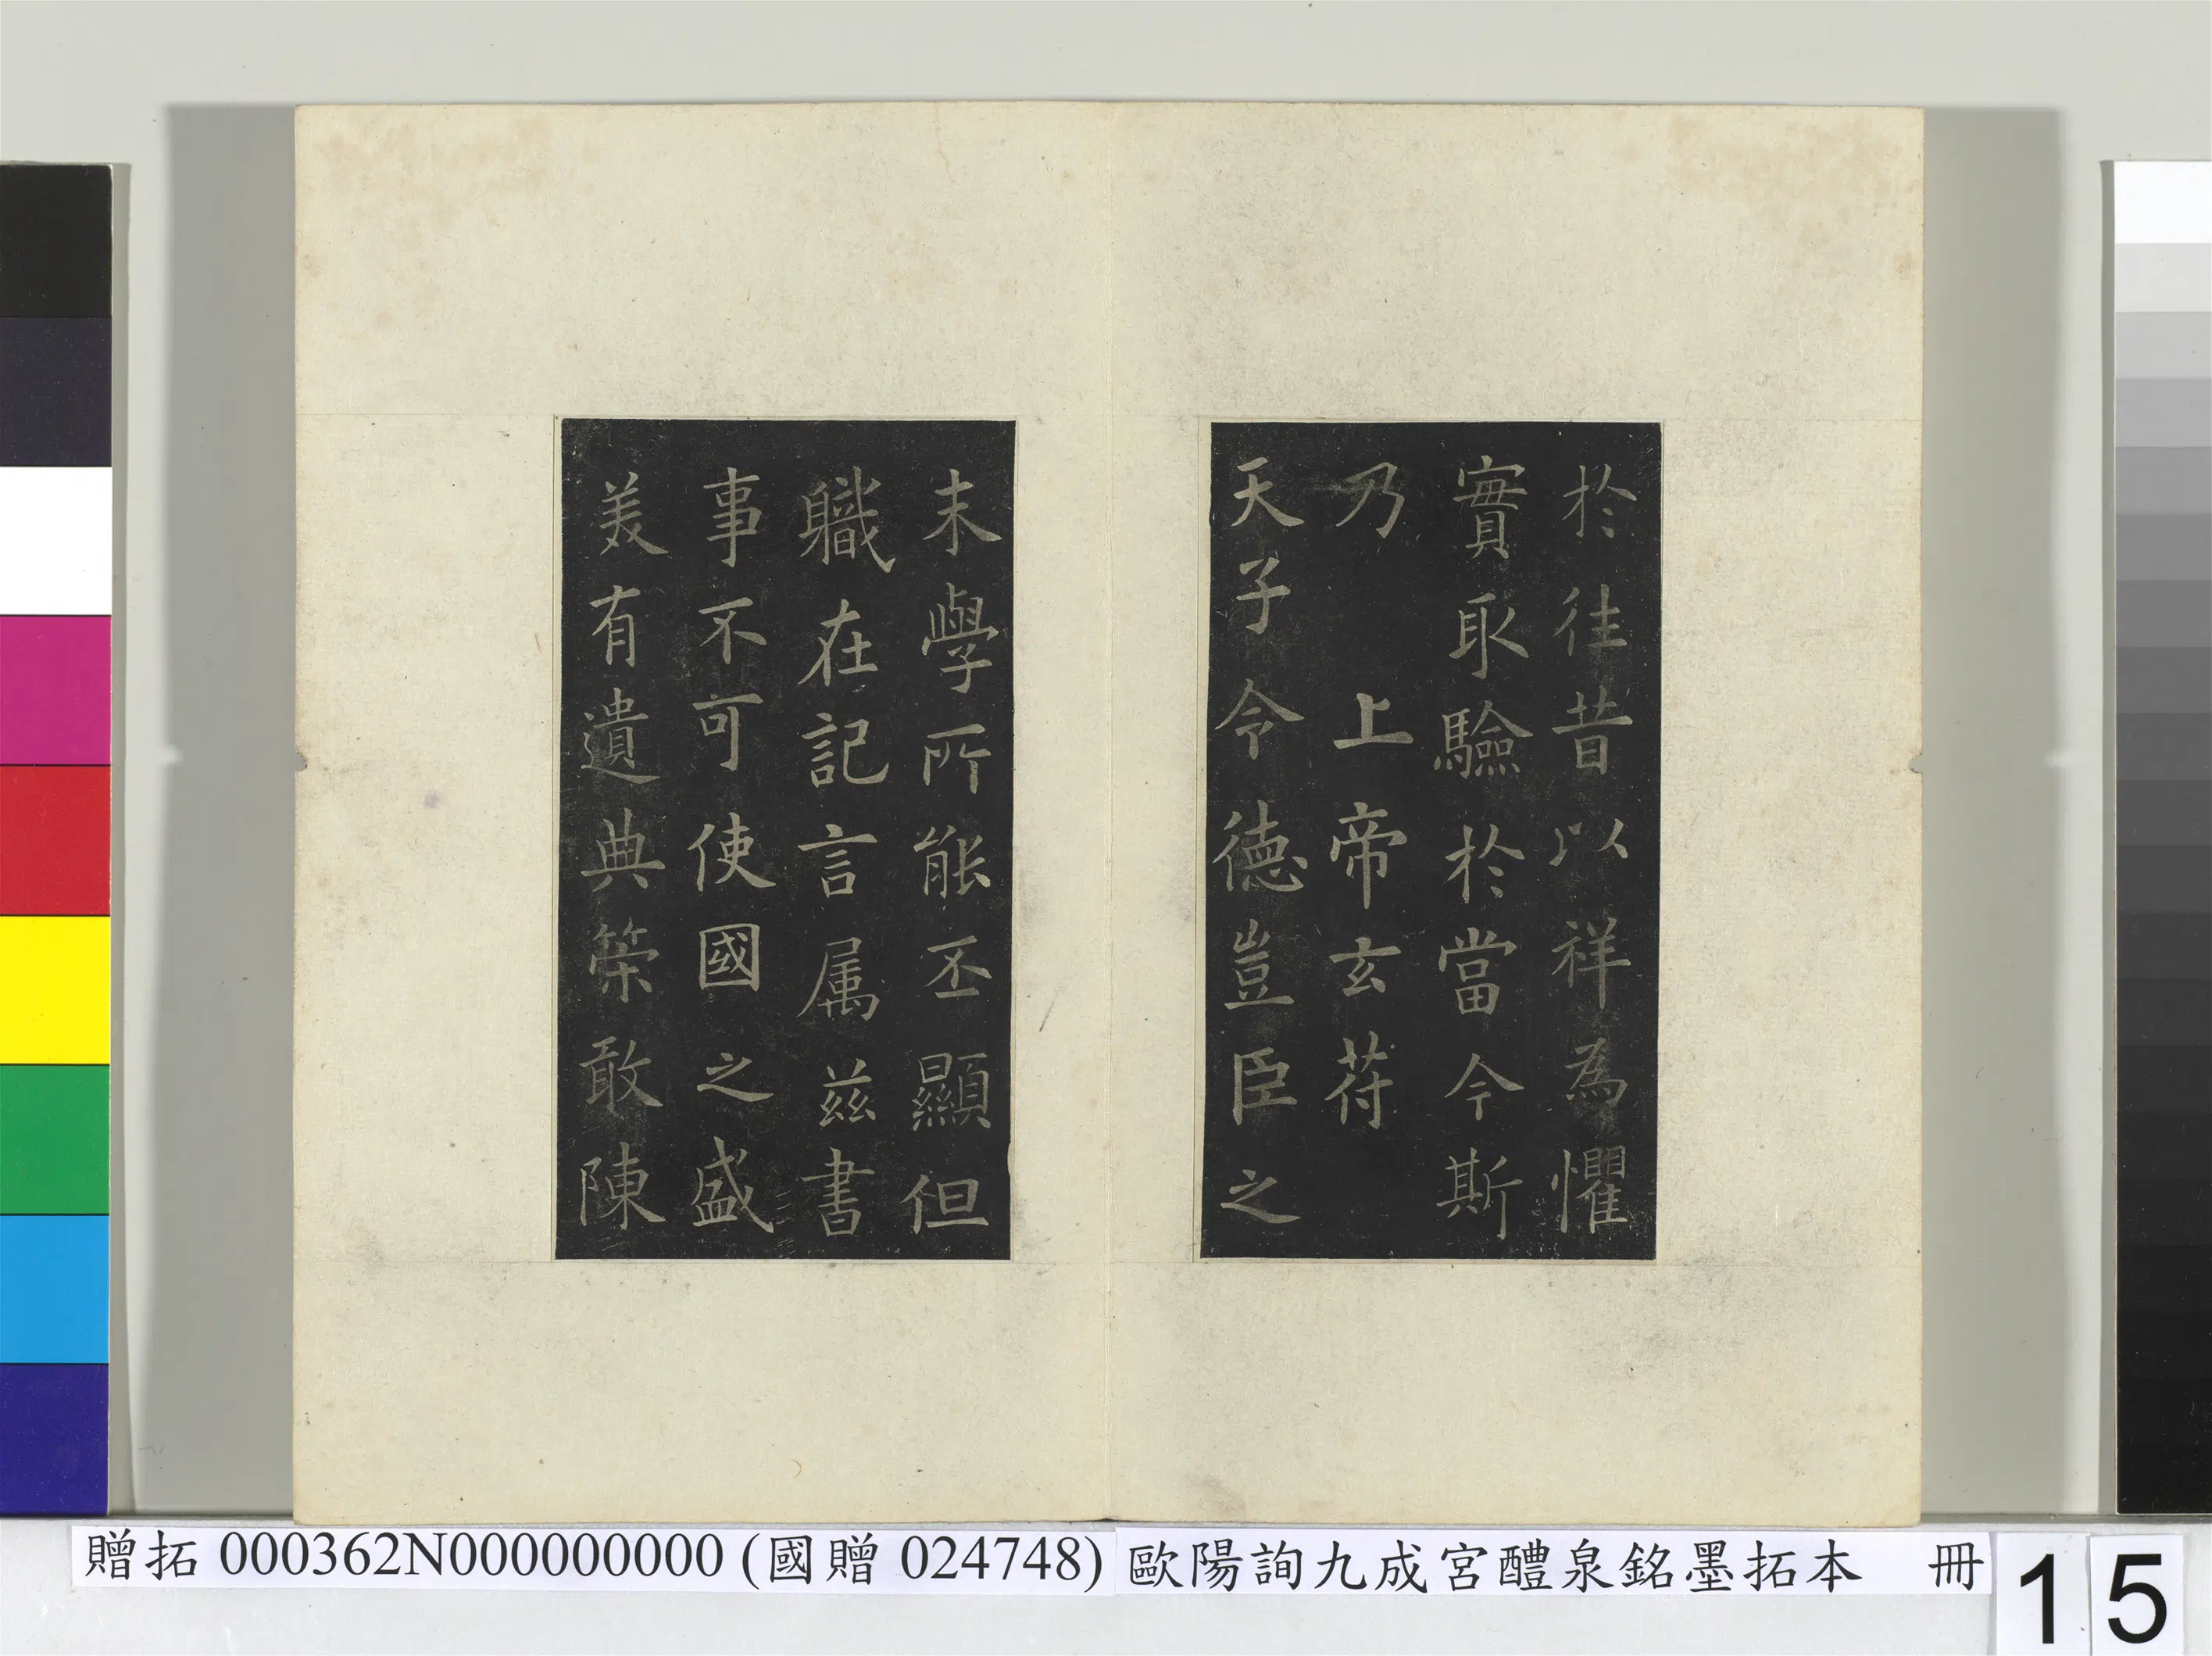 於往昔以祥為懼
實取驗於當今斯
乃 上帝玄苻
天子令德豈臣之
末學所能丕顯但
職在記言属茲書
事不可使國之盛
美有遺典策敢陳
贈拓 000362N000000000 (國贈 024748) 歐陽詢九成宮醴泉銘墨拓本 冊 15